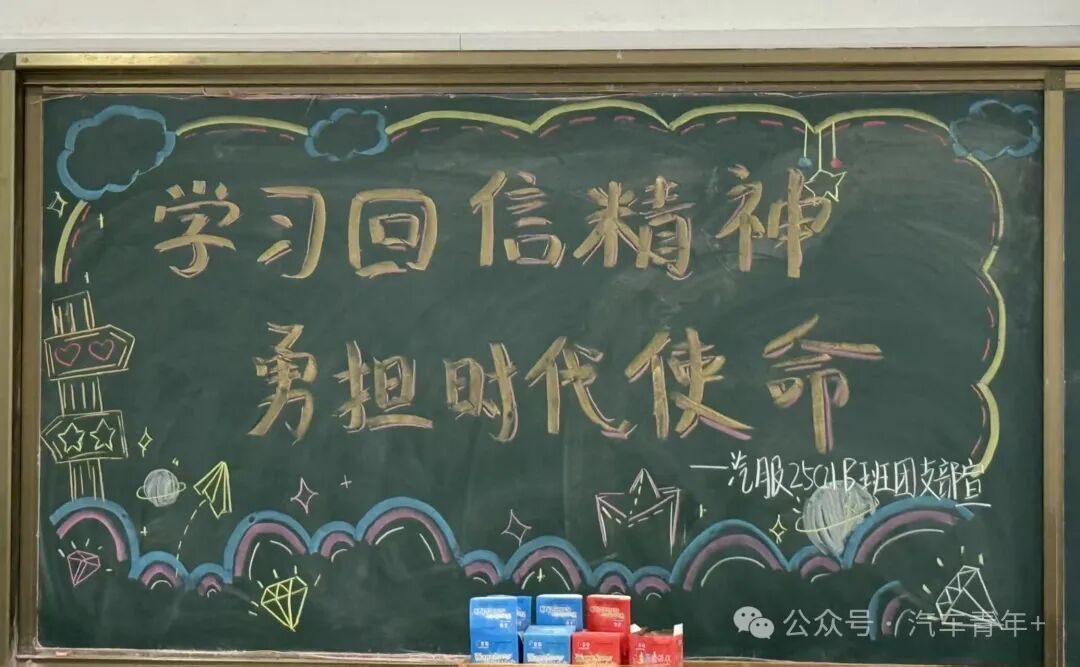 学习回信精神
勇担时代使命
—汽服2501B班团支部宣
公众号·汽车青年+